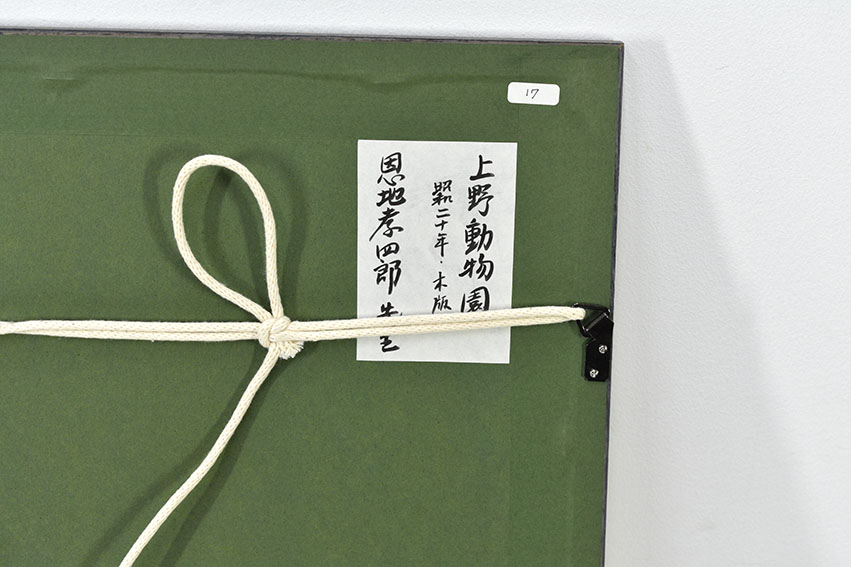 17
上野動物園
昭和二十年・木版
恩地孝四郎 先生